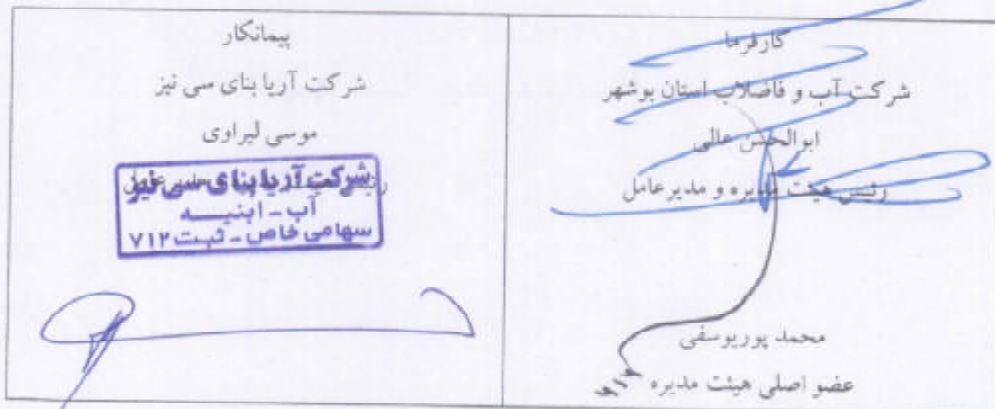 کارفرما
شرکت آب و فاضلاب استان بوشهر
ابوالحسن عالی
رئیس هیئت مدیره و مدیرعامل
محمد پوریوسفی
عضو اصلی هیئت مدیره
پیمانکار
شرکت آریا بنای سی نیز
موسی لیراوی
شرکت آریا بنای سی نیز
آب - ابنیــه
سهامی خاص - ثبت ۷۱۲